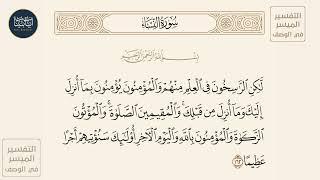 التفسير
الميسر
في الوصف
سُورَةُ النِّسَاءِ
بِسْمِ اللَّهِ الرَّحْمَٰنِ الرَّحِيمِ
لَّٰكِنِ ٱلرَّٰسِخُونَ فِى ٱلْعِلْمِ مِنْهُمْ وَٱلْمُؤْمِنُونَ يُؤْمِنُونَ بِمَآ أُنزِلَ
إِلَيْكَ وَمَآ أُنزِلَ مِن قَبْلِكَ ۚ وَٱلْمُقِيمِينَ ٱلصَّلَوٰةَ ۚ وَٱلْمُؤْتُونَ
ٱلزَّكَوٰةَ وَٱلْمُؤْمِنُونَ بِٱللَّهِ وَٱلْيَوْمِ ٱلْءَاخِرِ أُو۟لَٰٓئِكَ سَنُؤْتِيهِمْ أَجْرًا
عَظِيمًا
التفسير
الميسر
في الوصف